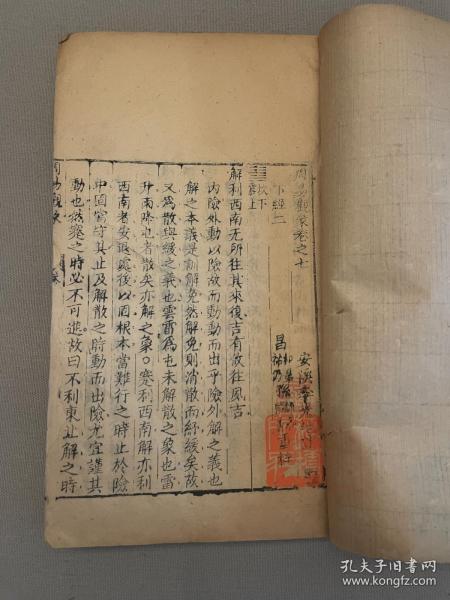 周易觀彖卷之七
安溪
下經二
坎下
震上
解利西南无所往其來復吉有攸往夙吉
內險外動以險故而動動而出乎險外解之義也
解之本義是動解免然解免則消散而紓緩矣故
又為散與緩之義也雲雷為屯未解散之象也雷
升雨降也者散矣亦解之象○蹇利西南解亦利
西南者安退處後以固根本當難行之時止於險
中固當守其止及解散之時動而出險尤宜謹其
動也然蹇之時必不可進故曰不利東北解之時
周易觀彖
孔夫子旧书网
www.kongfz.com